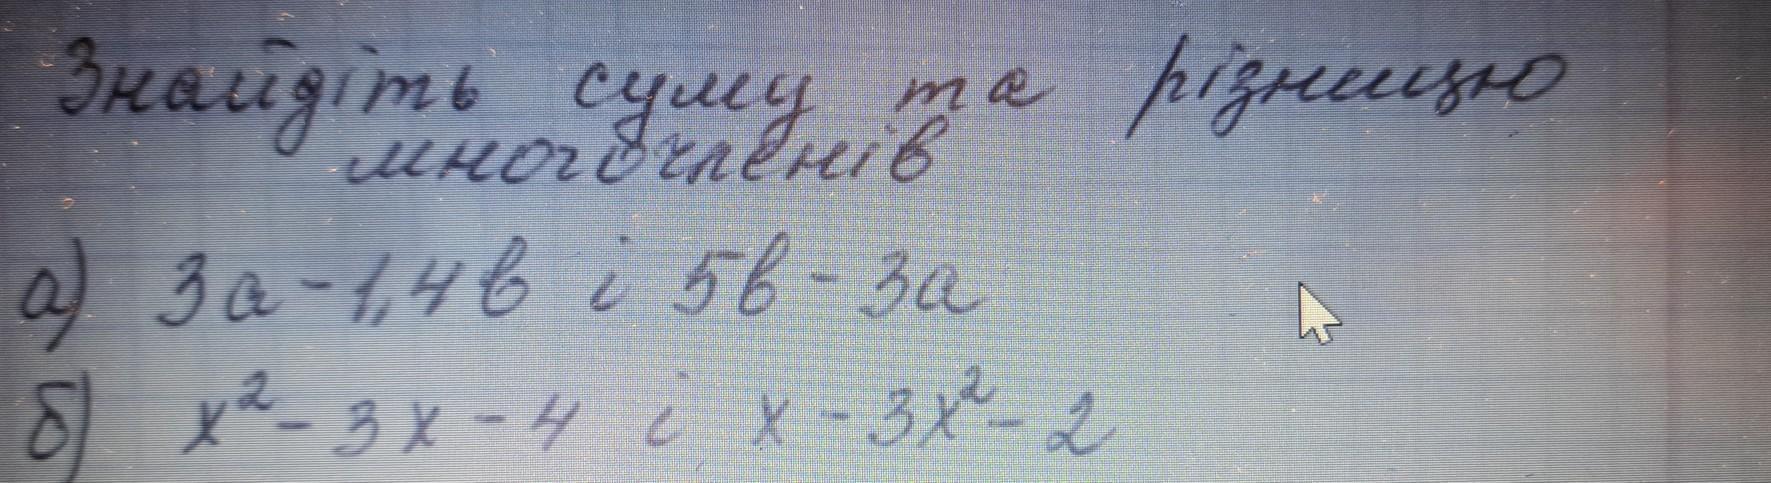 Знайдіть суму та різницю
многочленів
а) 3а - 1,4в і 5в - 3а
б) x² - 3x - 4 і x - 3x² - 2